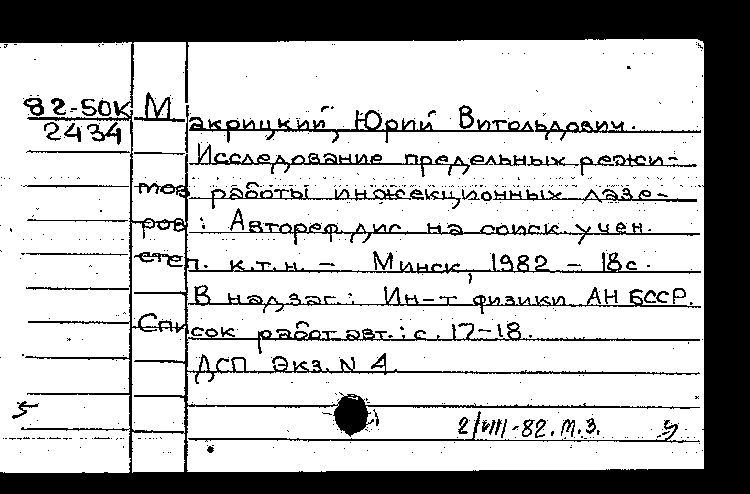 82-50К Макрицкий, Юрий Витольдович.
2434
Исследование предельных режи-
тов работы инжекционных лазе-
ров : Автореф. дис. на соиск. учен.
степ. к.т.н. – Минск, 1982 – 18с.
В надзаг.: Ин-т физики АН БССР.
Список работ авт.: с. 17-18.
ДСП Экз. N 4.
2/VIII-82. М.З.